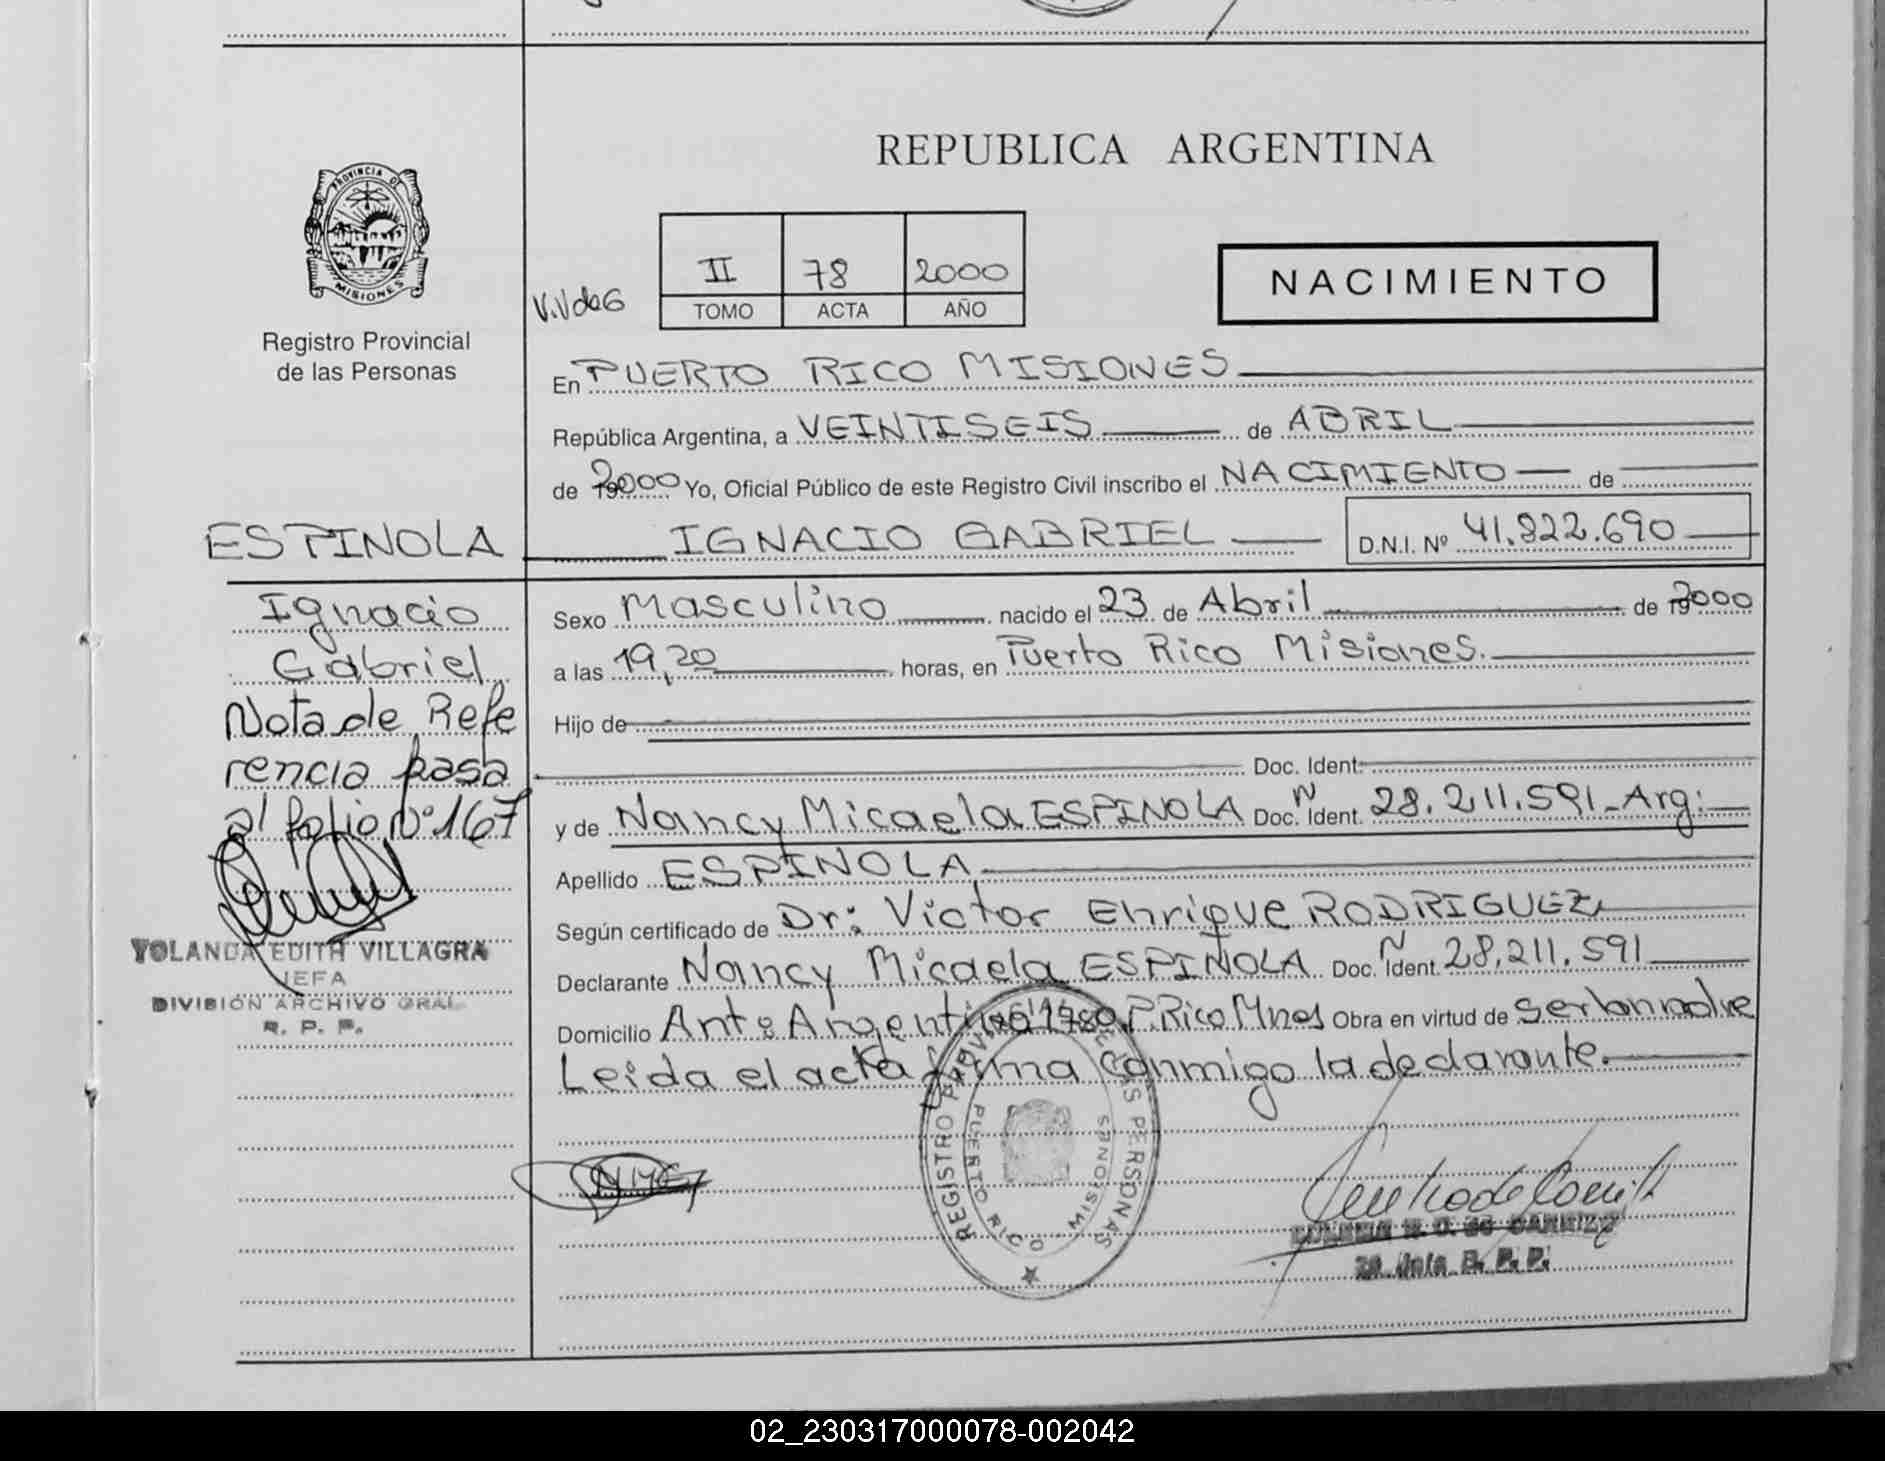 REPUBLICA ARGENTINA
PROVINCIA DE
MISIONES
Registro Provincial
de las Personas
V.V de G
II 78 2000
TOMO ACTA AÑO
NACIMIENTO
En PUERTO RICO MISIONES
República Argentina, a VEINTISEIS de ABRIL
de 2000 Yo, Oficial Público de este Registro Civil inscribo el NACIMIENTO de
ESPINOLA IGNACIO GABRIEL D.N.I. Nº 41.822.690
Ignacio
Gabriel
Nota de Refe
rencia pasa
al folio Nº 167
YOLANDA EDITH VILLAGRA
JEFA
DIVISIÓN ARCHIVO GRAL.
R. P. P.
Sexo Masculino nacido el 23 de Abril de 2000
a las 19,20 horas, en Puerto Rico Misiones.
Hijo de
Doc. Ident.
y de Nancy Micaela ESPINOLA Doc. Ident. N 28.211.591 - Arg:
Apellido ESPINOLA
Según certificado de Dr: Victor Enrique RODRIGUEZ
Declarante Nancy Micaela ESPINOLA Doc. Ident. N 28.211.591
Domicilio Antº Argentina 1980 P. Rico Mnes Obra en virtud de ser la madre
Leida el acta firma conmigo la declarante.
REGISTRO PROVINCIAL DE LAS PERSONAS
PUERTO RICO MISIONES
R. P. P.
02_230317000078-002042